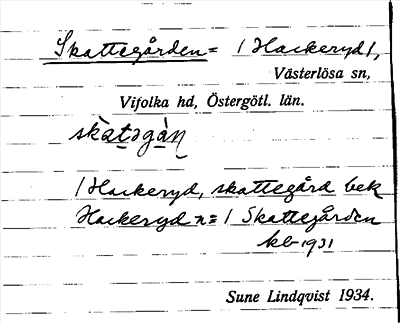 Skattegården = 1 Hackeryd 1,
Västerlösa sn,
Vifolka hd, Östergötl. län.
skat̲əgàn̲
1 Hackeryd, skattegård bek
Hackeryd n = 1 Skattegården
kb 1931
Sune Lindqvist 1934.